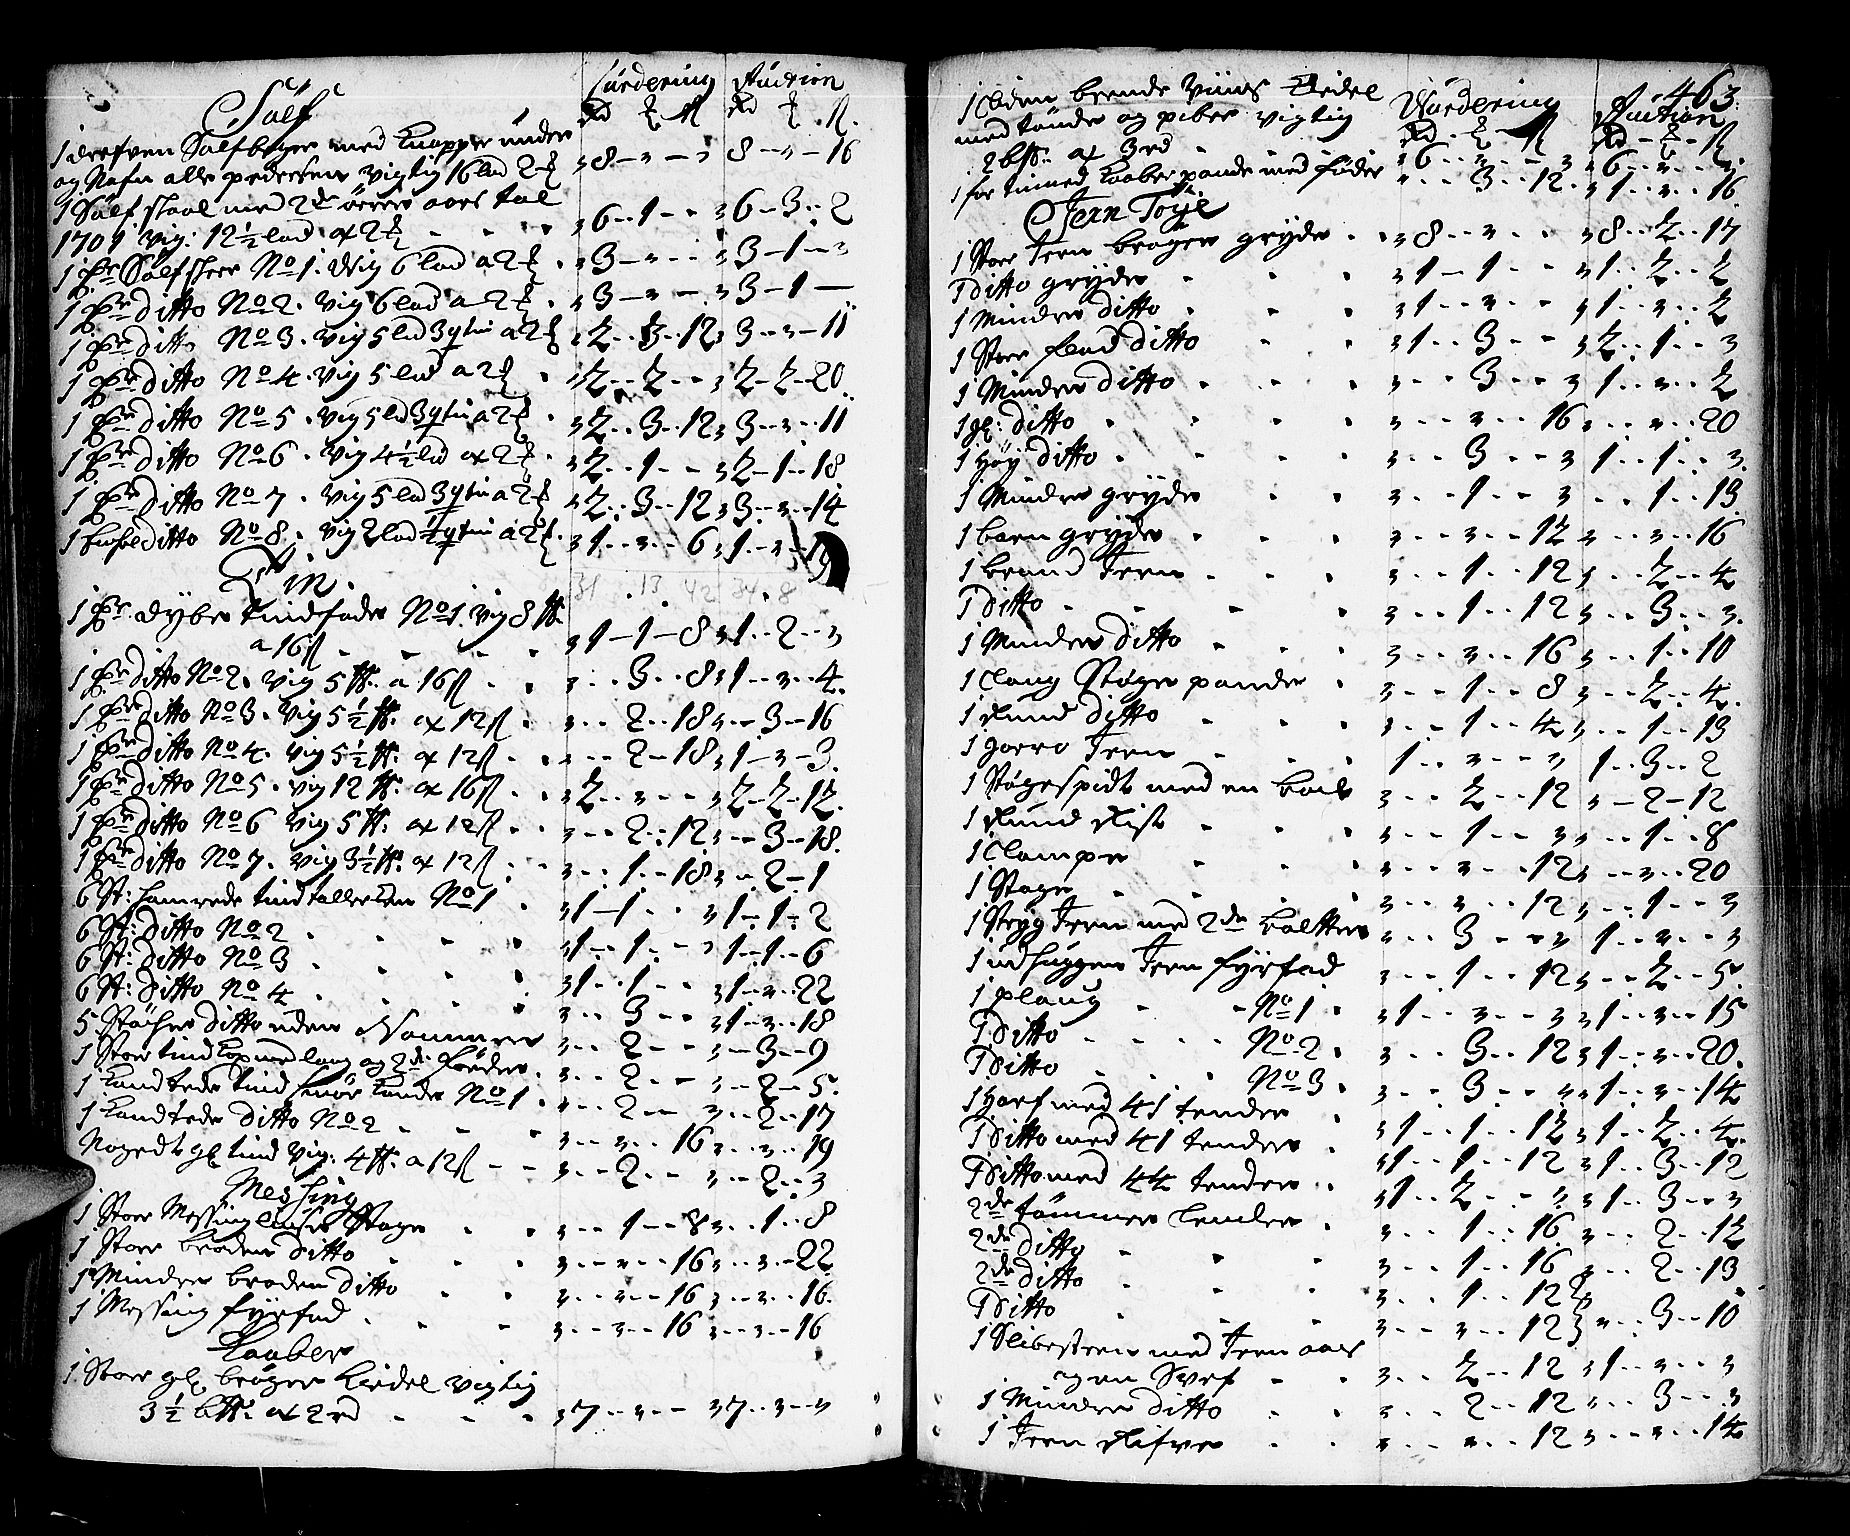 Vurdering Auction
Sølf
Rd ℥ ß Rd ℥ ß
1 drefven Sølfbeger med Knapper under
og Nafn alle pedersen vigtig 16 lod 2 ℥ 8 - - 8 - - 16
1 Sølf skaal med 2de ørrer aars tal
1701 vig: 12½ lod a 2 ℥ 6 - 1 - 6 - 3 - 2
1 Pr Sølfskeer No 1. Wig 6 lod a 2 ℥ 3 - - 3 - 1 -
1 Pr ditto No 2. vig 6 lod a 2 ℥ 3 - - 3 - 1 -
1 Pr ditto No 3. vig 5 lod 3 qtin a 2 ℥ 2 - 3 - 12 3 - - 11
1 Pr ditto No 4. vig 5 lod a 2 ℥ 2 - 2 - 2 - 2 - 20
1 Pr ditto No 5. vig 5 lod 3 qtin a 2 ℥ 2 - 3 - 12 3 - - 11
1 Pr ditto No 6. vig 4½ lod a 2 ℥ 2 - 1 - 2 - 1 - 18
1 Pr ditto No 7. vig 5 lod 3 qtin a 2 ℥ 2 - 3 - 12 3 - - 14
1 ditto No 8. vig 2 lod qtin a 2 ℥ 1 - - 6 1 - - 19
Tin.
31 . 13 42 34 . 8
1 Pr dybe tindfade No 1 vig 8 ℔
a 16 ß 1 - 1 - 8 1 - 2 -
1 Pr ditto No 2. vig 5 ℔. a 16 ß - 3 - 8 1 - - 4.
1 Pr ditto No 3. vig 5½ ℔. a 12 ß - 2 - 18 - 3 - 16
1 Pr ditto No 4. vig 5½ ℔. a 12 ß - 2 - 18 1 - - 3.
1 Pr ditto No 5. vig 12 ℔. a 16 ß 2 - - 2 - 2 - 12.
1 Pr ditto No 6 vig 5 ℔. a 12 ß - 2 - 12 - 3 - 18.
1 Pr ditto No 7. vig 3½ ℔. a 12 ß - 1 - 18 - 2 - 1
6 St: hamrede tindtallerken No 1 1 - 1 - 1 - 1 - 2
6 St: ditto No 2 1 - 1 - 1 - 1 - 6
6 St: ditto No 3 1 - 1 - 1 - - 22
6 St: ditto No 4 - 3 - 1 - - 18
5 Støcher ditto uden Nommer - 2 - - 3 - 9
1 Stoer tind Kop med laag og 2de - 2 - - 2 - 5.
1 Kandtede tind smør Kande No 1 - 2 - - 2 - 17
1 Kandtede ditto No 2 - - 16 - - 19
Nogedt gl tind vig: 4 ℔. a 12 ß - 2 - - 2 - 3
Messing
1 Stoer Messing liuse Stage - 1 - 8 - 1 - 8
1 Stoer broden ditto - - 16 - - 22
1 Minder broden ditto - - 16 - - 16.
1 Messing fyrfad - - 16 - - 16
Kaaber
1 Stoer gl brøger Kiedel vigtig
3½ b℔. a 2 rd 7 - - 7 - -
463.
1 liden brende viins Kiedel Wurdering Auction
med tønde og piber vigtig Rd ℥ ß Rd ℥ ß
2 b℔: a 3 rd 6 - - 6 - -
1 for tinned Kaaber pande med føder - 3 - 12 1 - - 16
Jern Tøye
1 Stoer Jern brøger gryde 8 - - 8 - 2 - 17
1 ditto gryde 1 - 1 - 1 - 2 - 2
1 Minder ditto 1 - - 1 - - 2
1 Stoer flad ditto 1 - 3 - 2 - 1 -
1 Minder ditto - 3 - 1 - - 2
1 gl: ditto - - 16 - - 20
1 Høy ditto - 3 - 1 - 1 -
1 Minder gryde - 1 - - 1 - 19
1 barn gryde - - 12 - - 16
1 brand Jern - 1 - 12 - 2 - 4
1 ditto - 1 - 12 - 3 -
1 Minder ditto - - 16 - 1 - 10
1 lang Støge pande - 1 - 8 - 2 - 4.
1 Rund ditto - 1 - 4 - 1 - 19
1 gorro Jern 1 - - 1 - 3 - 2
1 Støgespidt med en - 2 - 12 - 2 - 12
1 Rund Rist - 1 - - 1 - 8
1 lampe - - 12 - - 20
1 Stage - - 12 - 1 -
1 Stryg Jern med 2de boltter - 3 - 1 - -
1 udhuggen Jern fyrfad - 1 - 12 - 2 - 5.
1 plaug No 1 1 - - 1 - - 15
1 ditto No 2. - 3 - 12 1 - - 20.
1 ditto No 3. - 3 - 1 - - 14
1 Harf med 41 tender 1 - 1 - 12 1 - 2 - 4.
1 ditto med 41 tender 1 - 1 - 12 1 - 3 - 12
1 ditto med 44 tender 1 - 2 - 1 - 3 -
2de tømmer lencker - 1 - 16 - 2 - 12
2de ditto - 1 - 16 - 2 - 13
2de ditto - 1 - 12
1 ditto - - 12 - 3 - 10
1 Slibesteen med Jern aas
og en Svef - 2 - 12 1 - -
1 Minder ditto - 2 - 12 - 3 -
1 Jern Rifve - - 12 - - 14